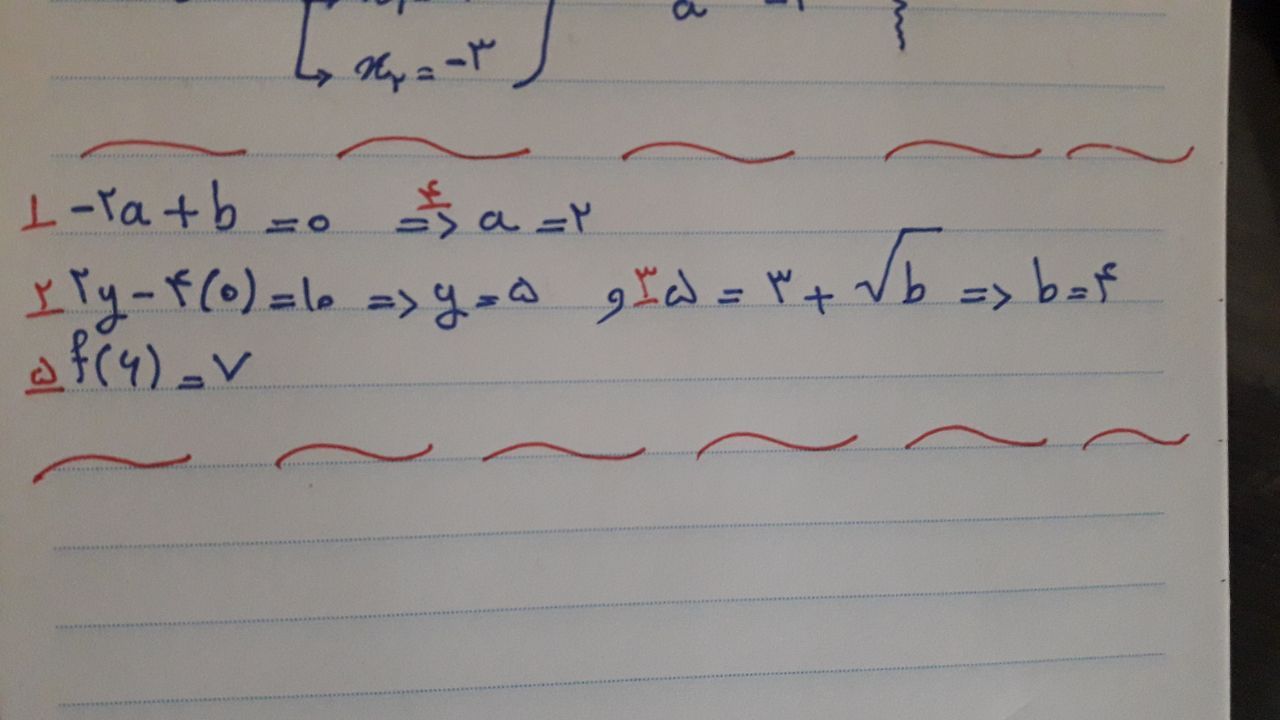 x₂ = -۳
۱ -۲a + b = ۰ ⇒ ۴ a = ۲
۲ ۲y - ۴(۰) = ۱۰ ⇒ y = ۵ , ۳ ۵ = ۳ + √b ⇒ b = ۴
۵ f(۶) = ۷